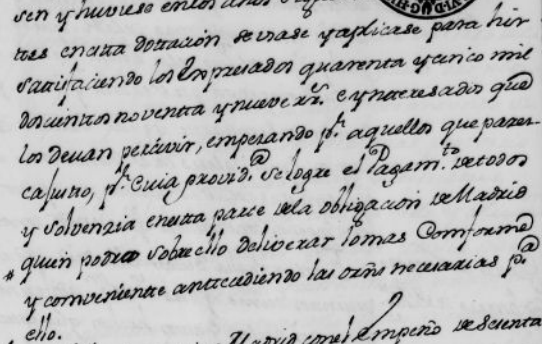 sen y huviese en los años
tes en esta dottacion se usase y aplicase para hir
satisfaciendo los Expresados quarenta y cinco mil
doscientos noventta y nueve rr.s e ynteresados que
los devan percivir, empezando p.r aquellos que parez-
ca justto, p.r Cuia provid.a se logre el Pagam.to de todos
y solvenzia en esta parte de la obligacion de Madrid
quien podra sobre ello deliverar lo mas Comforme
y combeniente antecediendo las orns necesarias p.a
ello.
Madrid con el Empeño de Sesenta